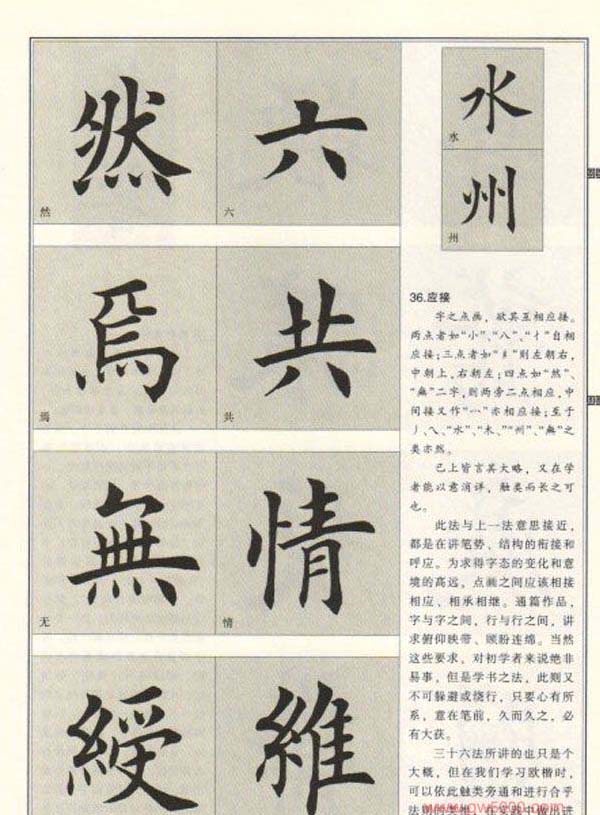 然
然
六
六
焉
焉
共
共
無
无
情
情
綬
維
水
水
州
州
36.应接
字之点画，欲其互相应接。
两点者如“小”、“八”、“忄”自相
应接；三点者如“糹”则左朝右，
中朝上，右朝左；四点如“然”、
“無”二字，则两旁二点相应，中
间接又作“一”亦相应接；至于
丿、乀、“水”、“木、”“州”、“無”之
类亦然。
已上皆言其大略，又在学
者能以意消详，触类而长之可
也。
此法与上一法意思接近，
都是在讲笔势、结构的衔接和
呼应。为求得字态的变化和意
境的高远，点画之间应该相接
相应、相承相继。通篇作品，
字与字之间，行与行之间，讲
求俯仰映带、顾盼连绵。当然
这些要求，对初学者来说绝非
易事，但是学书之法，此则又
不可躲避或绕行，只要心有所
系，意在笔前，久而久之，必
有大获。
三十六法所讲的也只是个
大概，但在我们学习欧楷时，
可以依此触类旁通和进行合乎